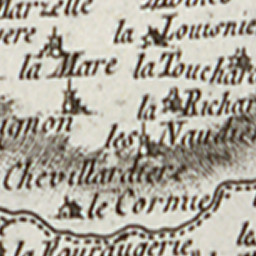 Marzelle
la Louisnie
la Mare la Touchard
la Richar
les Naudie
Chevillardiere
le Cormie
la Bourgugerie